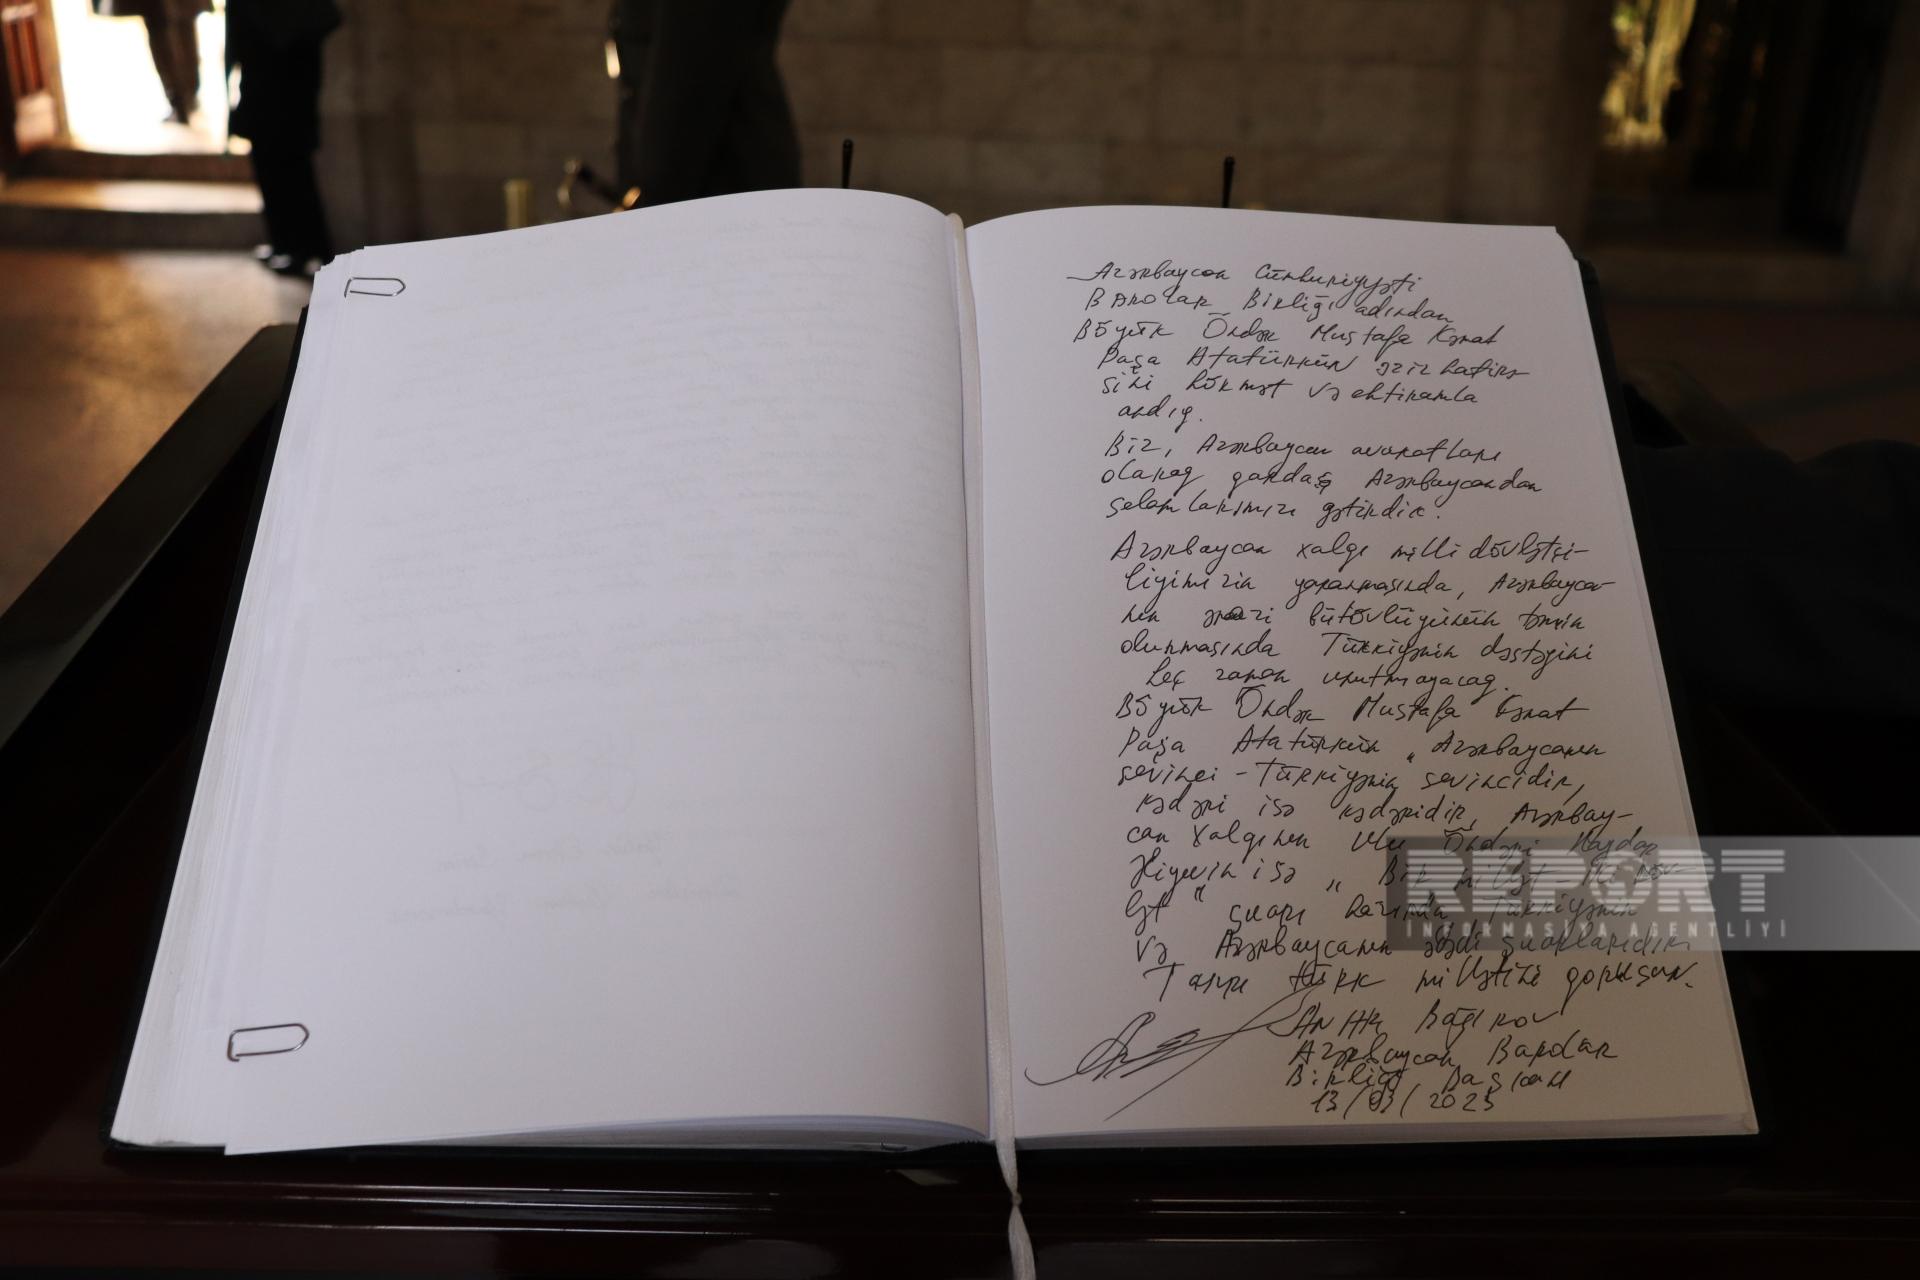 Azərbaycan Cümhuriyyəti
Barolar Birliği adından
Böyük Öndər Mustafa Kəmal
Paşa Atatürkün əziz hatirə
sini hökmət və ehtiramla
andıq.
Biz, Azərbaycan avukatları
olaraq qardaş Azərbaycandan
selamlarımızı gətirdik.
Azərbaycan xalqı milli dövlətçi-
liyimizin yaranmasında, Azərbayca-
nın ərazi bütövlüyünün təmin
olunmasında Türkiyənin dəstəyini
heç zaman unutmayacaq.
Böyük Öndər Mustafa Kəmal
Paşa Atatürkün „Azərbaycanın
sevinci - Türkiyənin sevincidir,
kədəri isə kədəridir, Azərbay-
can xalqının Ulu Öndəri Heydər
Əliyevin isə „Bir millət - iki döv-
lət" şuarı hazırda Türkiyənin
və Azərbaycanın əbədi şuarlarıdır.
Tanrı türk millətini qorusun.
Anar Bağırov
Azərbaycan Barolar
Birliği Başkanı
13/03/2025
REPORT
İNFORMASİYA AGENTLİYİ